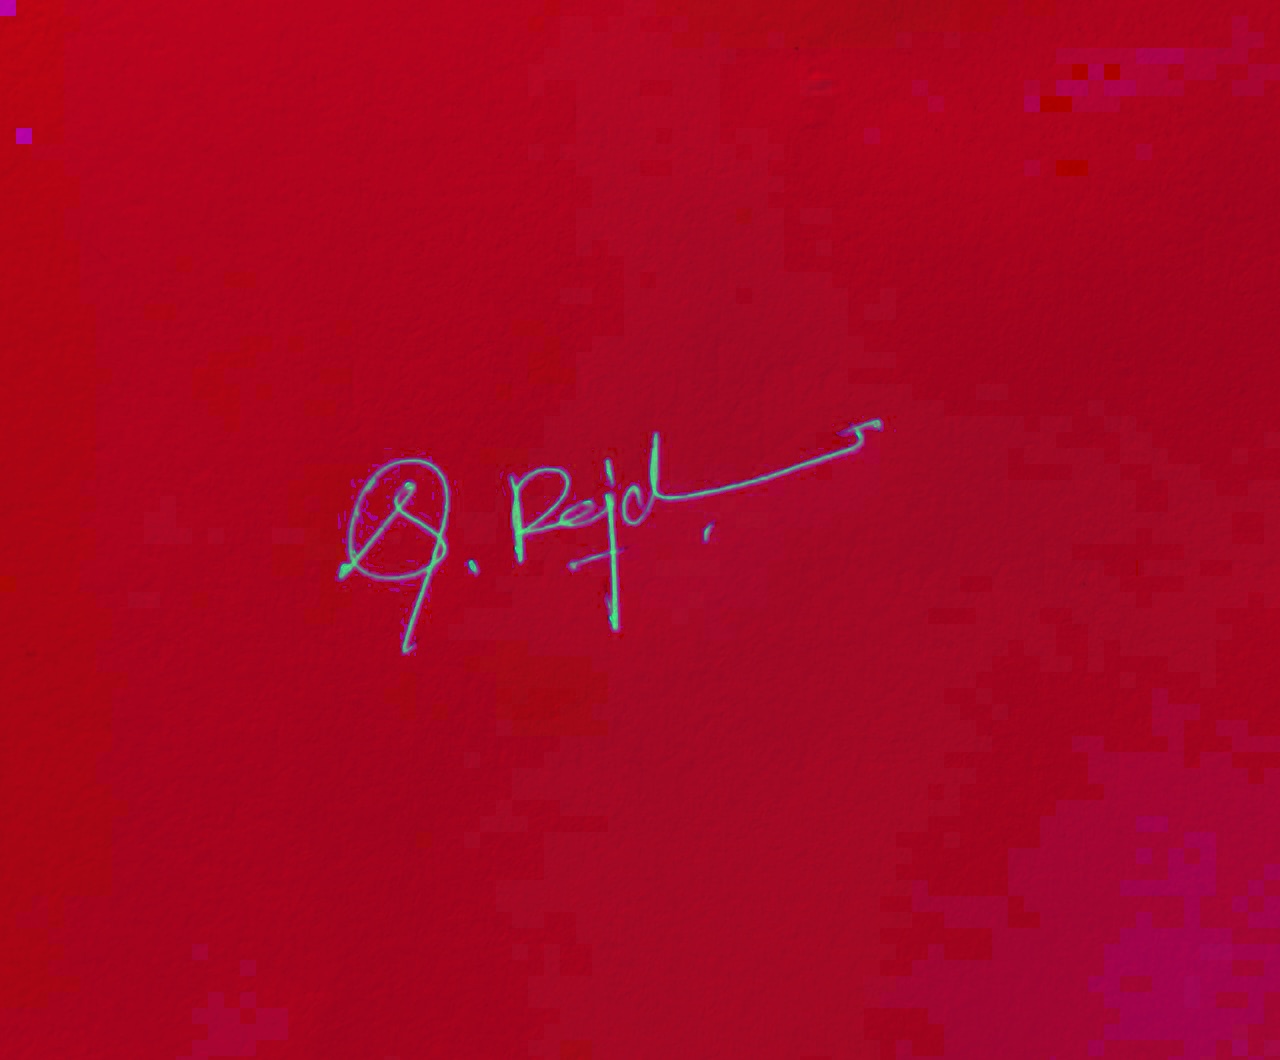 Q. Rejd